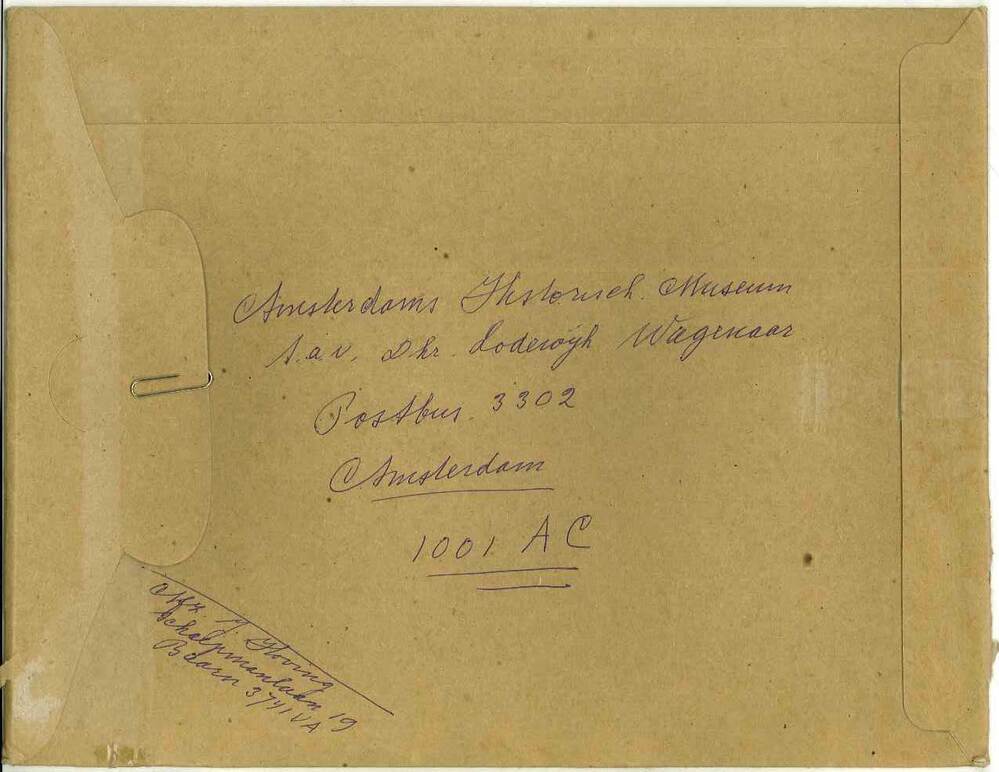 Amsterdams Historisch. Museum
t.a.v. Dhr. Lodewijk Wagenaar
Postbus. 3302
Amsterdam
1001 AC
J. Hoving
Schaepmanlaan 19
Baarn 3741VA